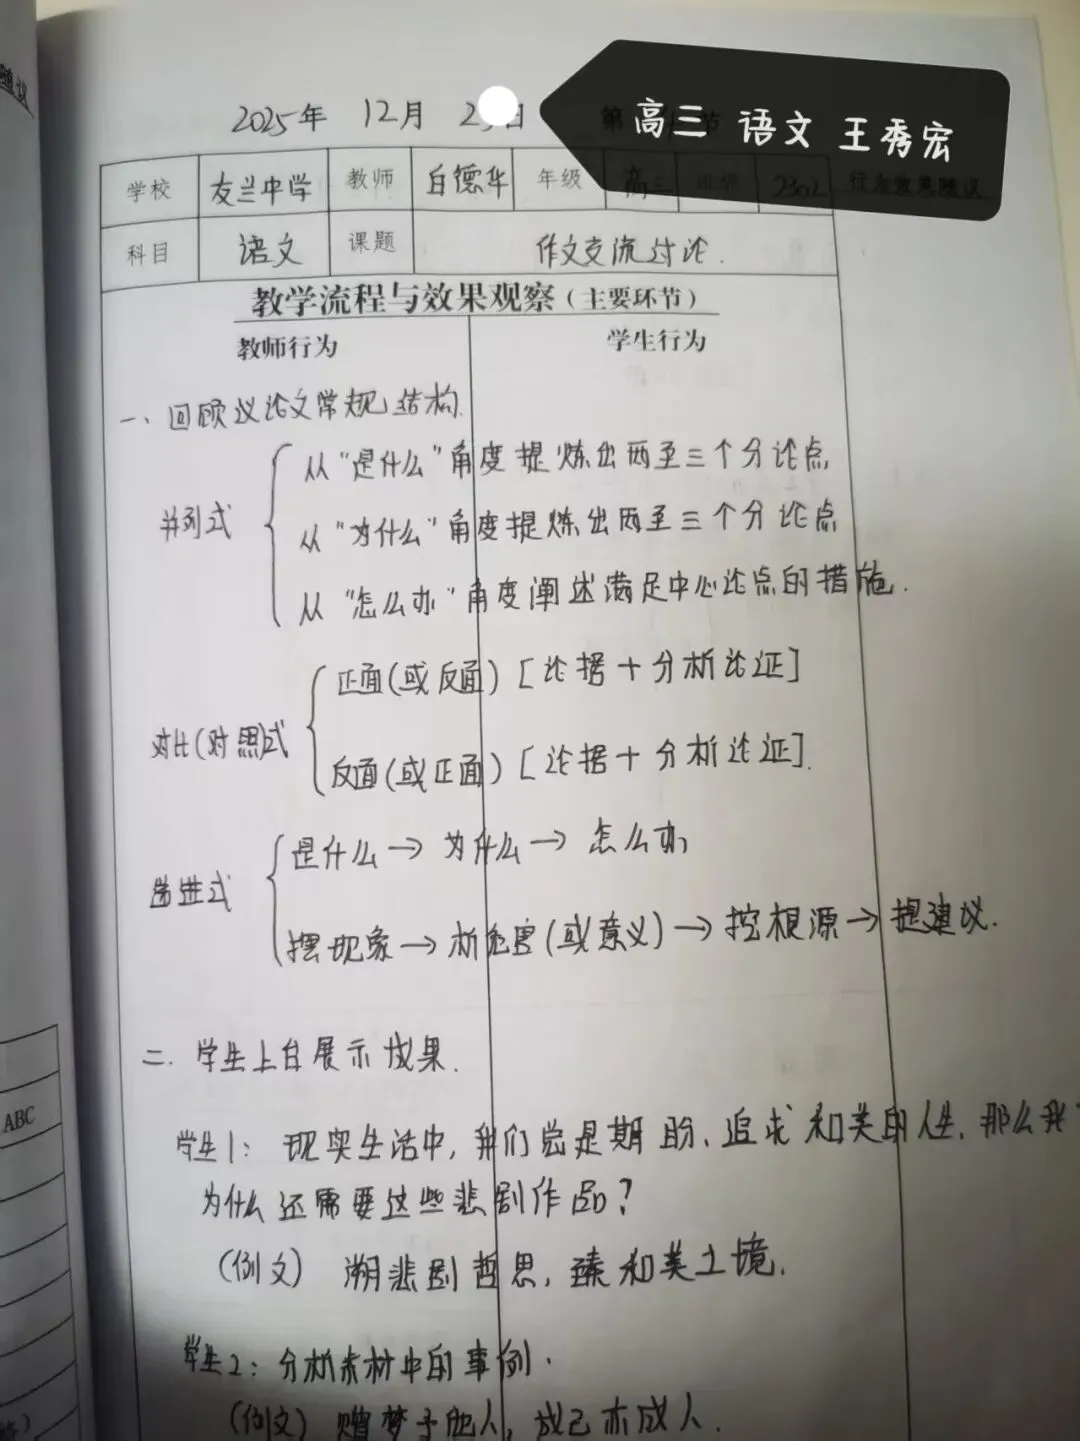 高三 语文 王秀宏
2025年 12月 2 日 第 节
学校 友兰中学 教师 白德华 年级 高三 2302 行为效果随议
科目 语文 课题 作文交流讨论.
教学流程与效果观察(主要环节)
教师行为 学生行为
一、回顾议论文常规结构.
从“是什么”角度提炼出两至三个分论点,
并列式
从“为什么”角度提炼出两至三个分论点
从“怎么办”角度阐述满足中心论点的措施.
正面(或反面)[论据+分析论证]
对比(对照)式
反面(或正面)[论据+分析论证].
是什么→为什么→怎么办
递进式
摆现象→析危害(或意义)→挖根源→提建议.
二.学生上台展示成果.
学生1: 现实生活中,我们总是期盼、追求和美的人生,那么我
为什么还需要这些悲剧作品?
(例文) 溯悲剧哲思,臻和美之境.
学生2:分析素材中的事例.
(例文) 赠梦予他人,成己亦成人.
ABC